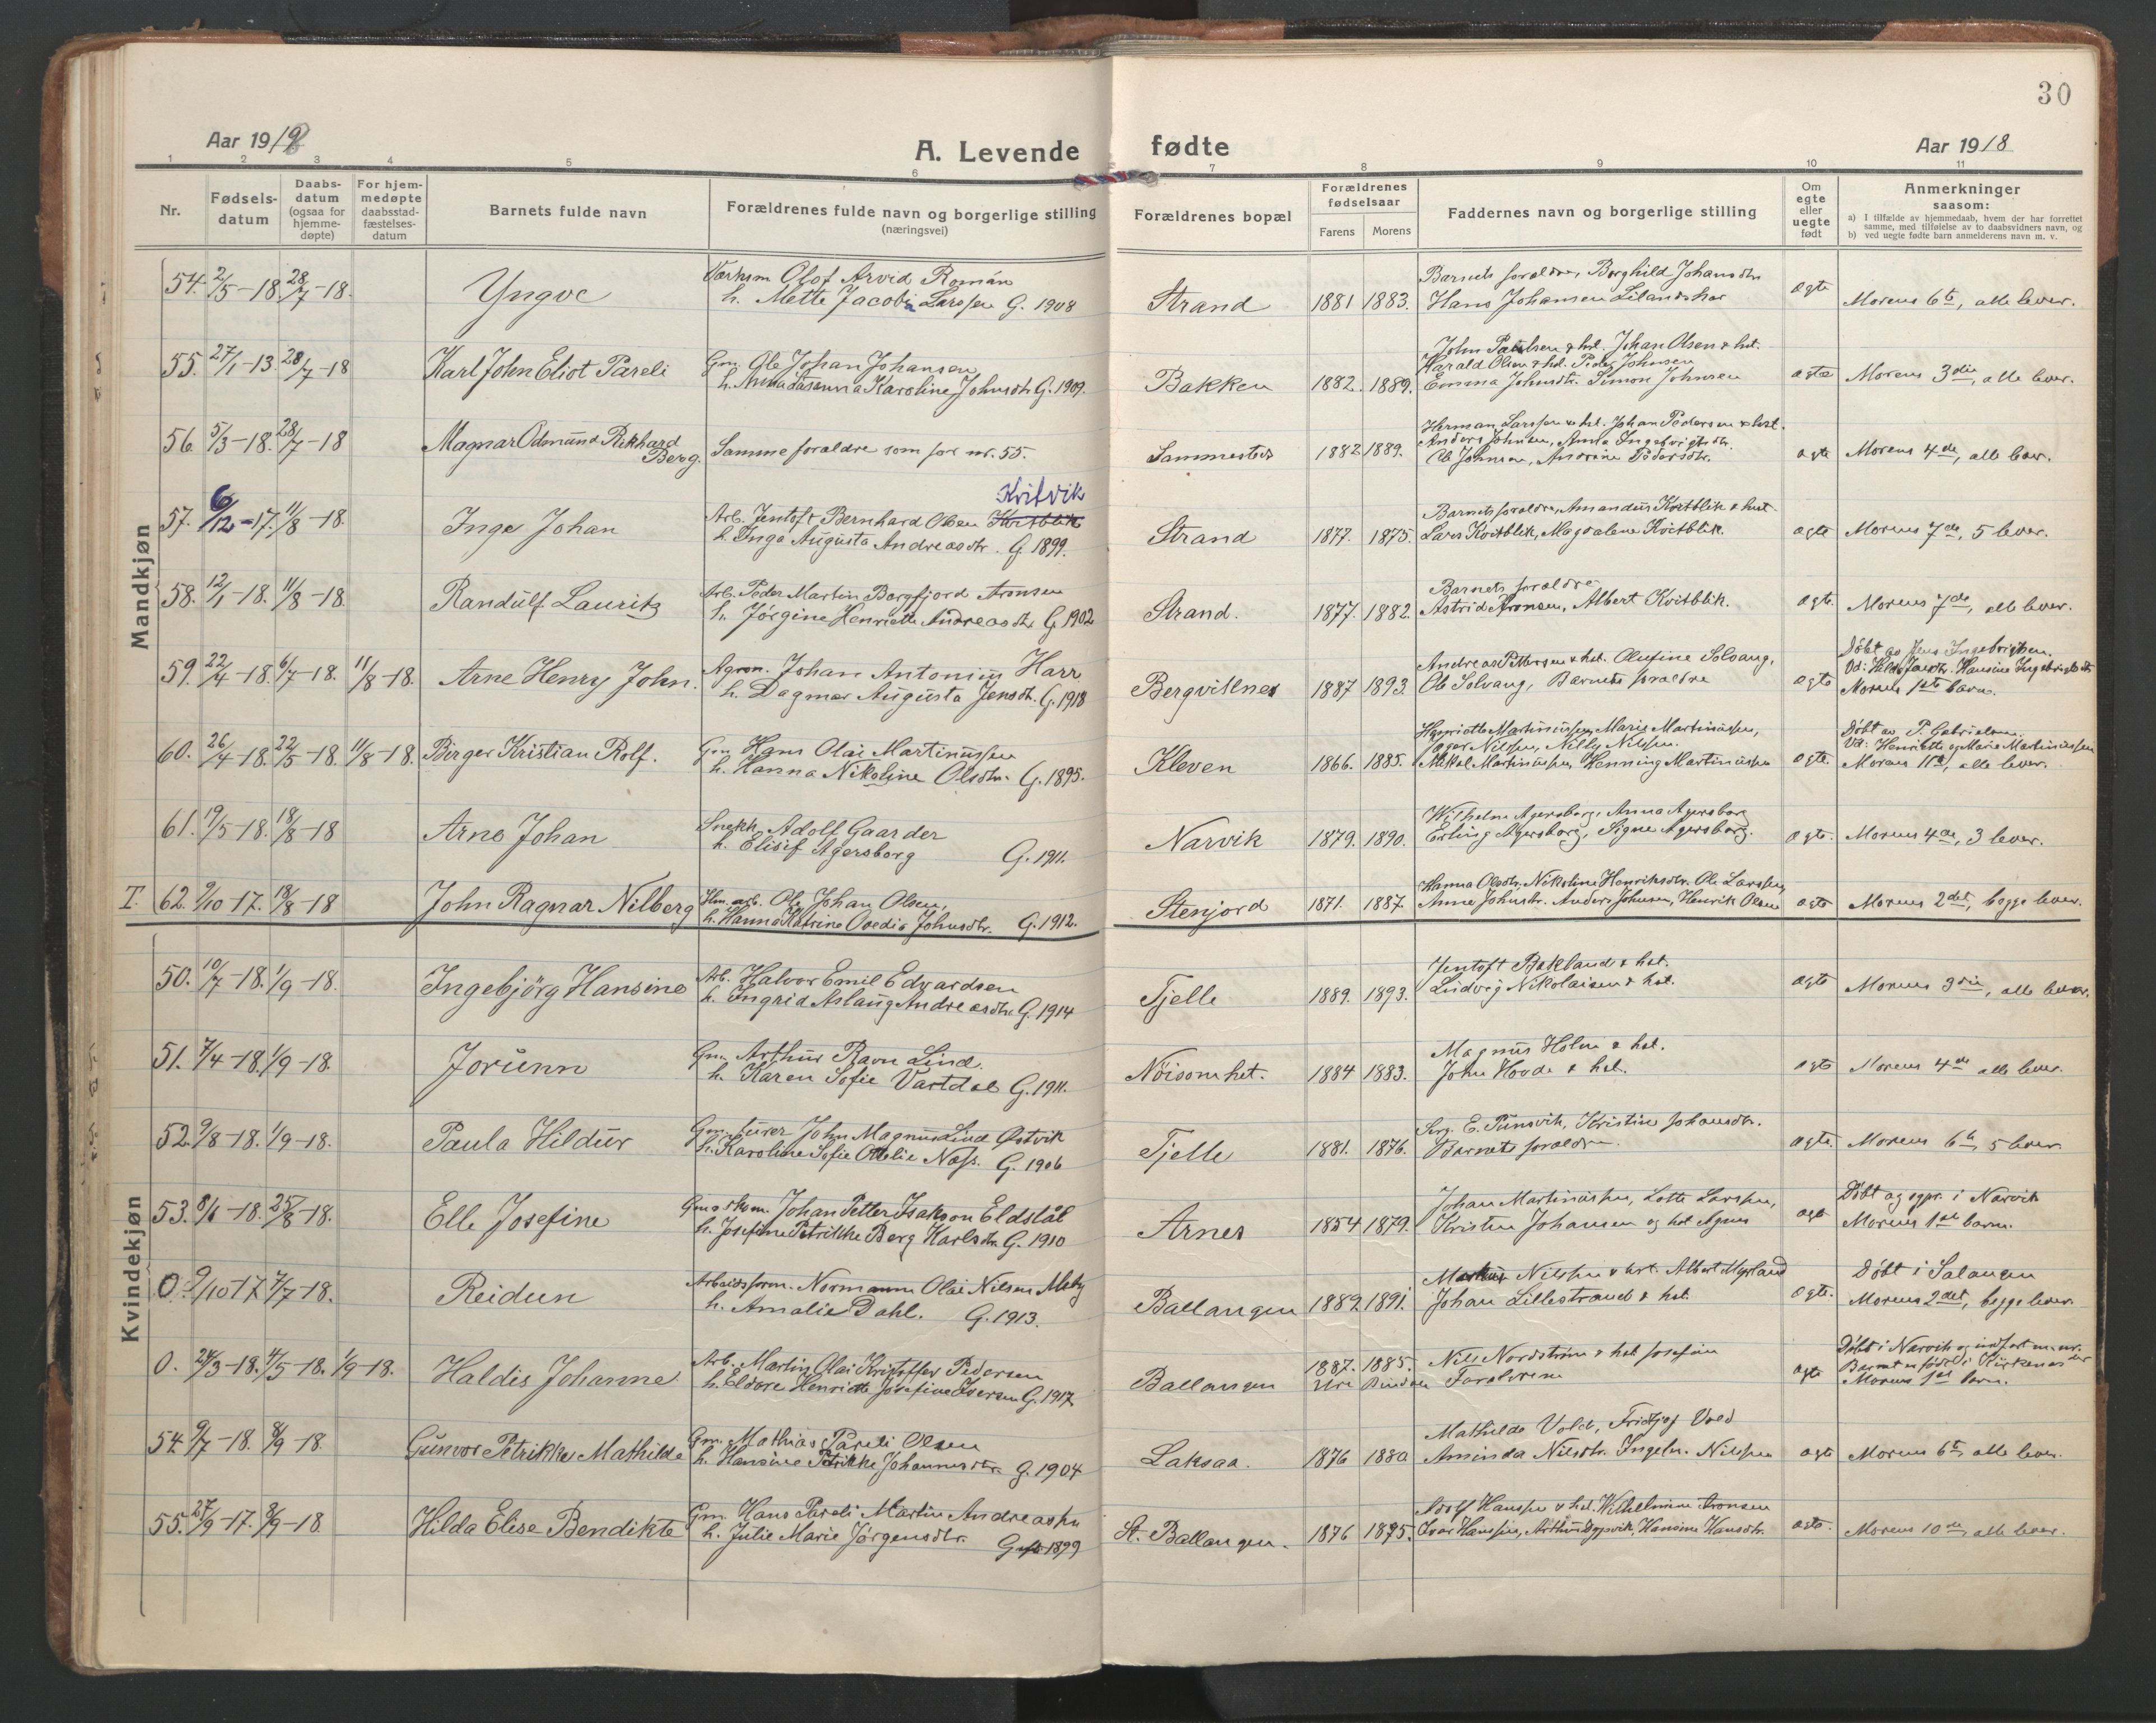 30
Aar 1918
A. Levende fødte
Aar 1918
1 2 3 4 5 6 7 8 9 10 11
Nr.
Fødsels-
datum
Daabs-
datum
(ogsaa for
hjemme-
døpte)
For hjem-
medøpte
daabsstad-
fæstelses-
datum
Barnets fulde navn
Forældrenes fulde navn og borgerlige stilling
(næringsvei)
Forældrenes bopæl
Forældrenes
fødselsaar
Farens Morens
Faddernes navn og borgerlige stilling
Om
egte
eller
uegte
født
Anmerkninger
saasom:
a) I tilfælde av hjemmedaab, hvem der har forrettet
samme, med tilføielse av to daabsvidners navn, og
b) ved uegte fødte barn anmelderens navn m. v.
Mandkjøn
54. 2/5-18. 28/7-18. Yngve
Olof Arvid Román
h. Mette Jacobin Larssen G. 1908
Strand 1881 1883.
Barnets foraldre, Borghild Johansdtr
Hans Johansen
ægte Morens 6te, alle lever.
55. 27/1-13 28/7-18 Karl John Eliot Pareli
Gm. Ole Johan Johansen
h. Anna Susanna Karoline Johnsdtr G. 1909.
Bakken 1882. 1889.
John Paulsen & hst. Johan Olsen & hst.
Harald Olsen & hst. Peder Johnsen
Emma Johnsdtr. Simon Johnsen
ægte Morens 3die, alle lever.
56. 5/3-18. 28/7-18 Magnar Odmund Rikhard
Berg.
Samme foraldre som for nr. 55.
Sammesteds 1882 1889.
Herman Larssen & hst. Johan Pedersen & hst.
Anders Johnsen, Anna Ingebrigtsdtr.
Ole Johnsen, Andrine Pedersdtr.
ægte Morens 4de, alle lever.
Kvitvik
57. 6/12-17. 11/8-18. Inge Johan
Arb. Jentoft Bernhard Olsen Kvitblik
h. Inga Augusta Andreasdtr. G. 1899.
Strand 1877. 1875.
Barnets foraldre, Amandus Kvitblik & hst.
Lars Kvitblik, Magdalene Kvitblik.
ægte Morens 7de, 5 lever.
58. 12/1-18. 11/8-18. Randulf Lauritz
Arb. Peder Martin Borgfjord Aronsen
h. Jørgine Henriette Andreasdtr G. 1902
Strand. 1877. 1882.
Barnets foraldre
Astrid Aronsen, Albert Kvitblik.
ægte. Morens 7de, alle lever.
59. 22/4-18. 6/7-18. 11/8-18. Arne Henry John.
Agron. Johan Antonius Harr
h. Dagmar Augusta Jensdtr. G. 1918
Bergvillnes 1887 1893.
Andreas Pettersen & hst. Olufine Solvang,
Ole Solvang, Barnets foraldre
ægte
Døbt av Jens Ingebrigtsen.
Vd: Hilda Jensdtr. Hansine Ingebrigtsdtr
Morens 1ste barn.
60. 26/4-18. 22/5-18. 11/8-18. Birger Kristian Rolf.
Gm. Hans Olai Martinussen
h. Hanna Nikoline Olsdtr. G. 1895.
Kleven 1866. 1885.
Henriette Martinussen, Marie Martinussen,
Jæger Nilsen, Nilly Nilsen.
Mikal Martinussen, Henning Martinussen
ægte.
Døbt av P. Gabrielsen.
Vd: Henriette og Marie Martinussen
Morens 11te, alle lever.
61. 19/5-18. 18/8-18 Arne Johan
Snekk. Adolf Gaarder
h. Elisif Agersborg G. 1911.
Narvik 1879. 1890.
Wilhelm Agersborg, Anna Agersborg
Erling Agersborg, Signe Agersborg.
ægte. Morens 4de, 3 lever.
T. 62. 9/10-17. 18/8-18 John Ragnar Nilberg
arb. Ole Johan Olsen,
h. Hanna Katrine Ovedia Johnsdtr. G. 1912.
Stenjord 1871. 1887.
Hanna Olsdtr. Nikoline Henriksdtr. Ole Larssen,
Anne Johnsdtr. Anders Johnsen, Henrik Olsen
ægte Morens 2det, begge lever.
Kvindekjøn
50. 10/7-18. 1/9-18. Ingebjörg Hansine
Arb. Halvor Emil Edvardsen
h. Ingrid Aslaug Andreasdtr. G. 1914
Tjelle 1889. 1893.
Jentoft Bakland & hst.
Ludvig Nikolaisen & hst.
ægte Morens 3die, alle lever.
51. 7/4-18. 1/9-18. Jorunn
Gm. Arthur Ravn Lind.
h. Karen Sofie Vartdal G. 1911.
Nöisomhet. 1884 1883.
Magnus Holm & hst.
John Hovde & hst.
ægte Morens 4de alle lever.
52. 9/8-18. 1/9-18. Paula Hildur
John Magnus Lind Østvik
h. Karoline Sofie Otelie Næss. G. 1906
Tjelle 1881. 1876.
Serg. E. Punsvik, Kristine Johansdtr.
Barnets foraldre.
ægte. Morens 6te, 5 lever.
53. 8/6-18. 25/8-18. Elle Josefine
Johan Petter Isakson Eldstål
h. Josefine Petrikke Berg Karlsdtr. G. 1910
Arnes 1854 1879.
Johan Martinussen, Lotte Larssen,
Kristen Johansen og hst Agnes
ægte
Døbt i Narvik
Morens 1ste barn.
0. 9/10-17 7/7-18. Reidun
Arbeidsform. Normann Olai Nilsen Meby
h. Amalie Dahl. G. 1913.
Ballangen 1889 1891.
Markus Nilsen & hst. Albert Myrland
Johan Lillestrand & hst.
ægte.
Døbt i Salangen
Morens 2det, begge lever.
0. 24/3-18. 4/5-18. 1/9-18. Haldis Johanne
Arb. Martin Olai Kristoffer Pedersen
h. Eldore Henriette Josefine Iversen G. 1917
Ballangen 1887. 1885.
Bindalen
Nils Nordstrøm & hst Josefine
Foraldrene
ægte
Døbt i Narvik og indført m. nr. der
Barnet er født i Kirkenes
Morens 1ste barn.
54. 9/7-18. 8/9-18. Gunvor Petrikke Mathilde
Gm. Mathias Pareli Olsen
h. Hansine Petrikke Johannesdtr. G. 1904
Laksaa. 1876 1880
Mathilde Vold, Fridtjof Vold
Aminda Nilsdtr. Nilssen
ægte Morens 6te, alle lever.
55. 27/9-17. 8/9-18. Hilda Elise Bendikte
Gm. Hans Pareli Martin Andreassen
h. Julie Marie Jørgensdtr. Gift 1899
St. Ballangen. 1876 1875.
Adolf Hanssen & hst. Wilhelmine Aronsen
Ivar Hanssen, Arthur Dypvik, Hansine Hansdtr.
ægte. Morens 10de, alle lever.